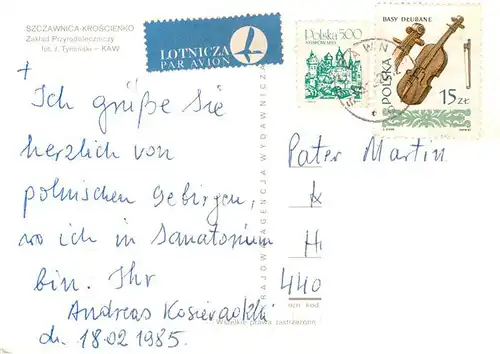 SZCZAWNICA-KROŚCIENKO
Zakład Przyrodoleczniczy
fot. J. Tymiński — KAW
LOTNICZA
PAR AVION
Polska 5.00
BASY DŁUBANE
POLSKA
15 ZŁ
+
Ich grüße Sie
herzlich von
polnischen Gebirgen,
wo ich in Sanatorium
bin. Ihr
Andreas
dn. 18.02 1985.
KRAJOWA AGENCJA WYDAWNICZA
Pater Martin
K
H
440
Wszelkie prawa zastrzeżone